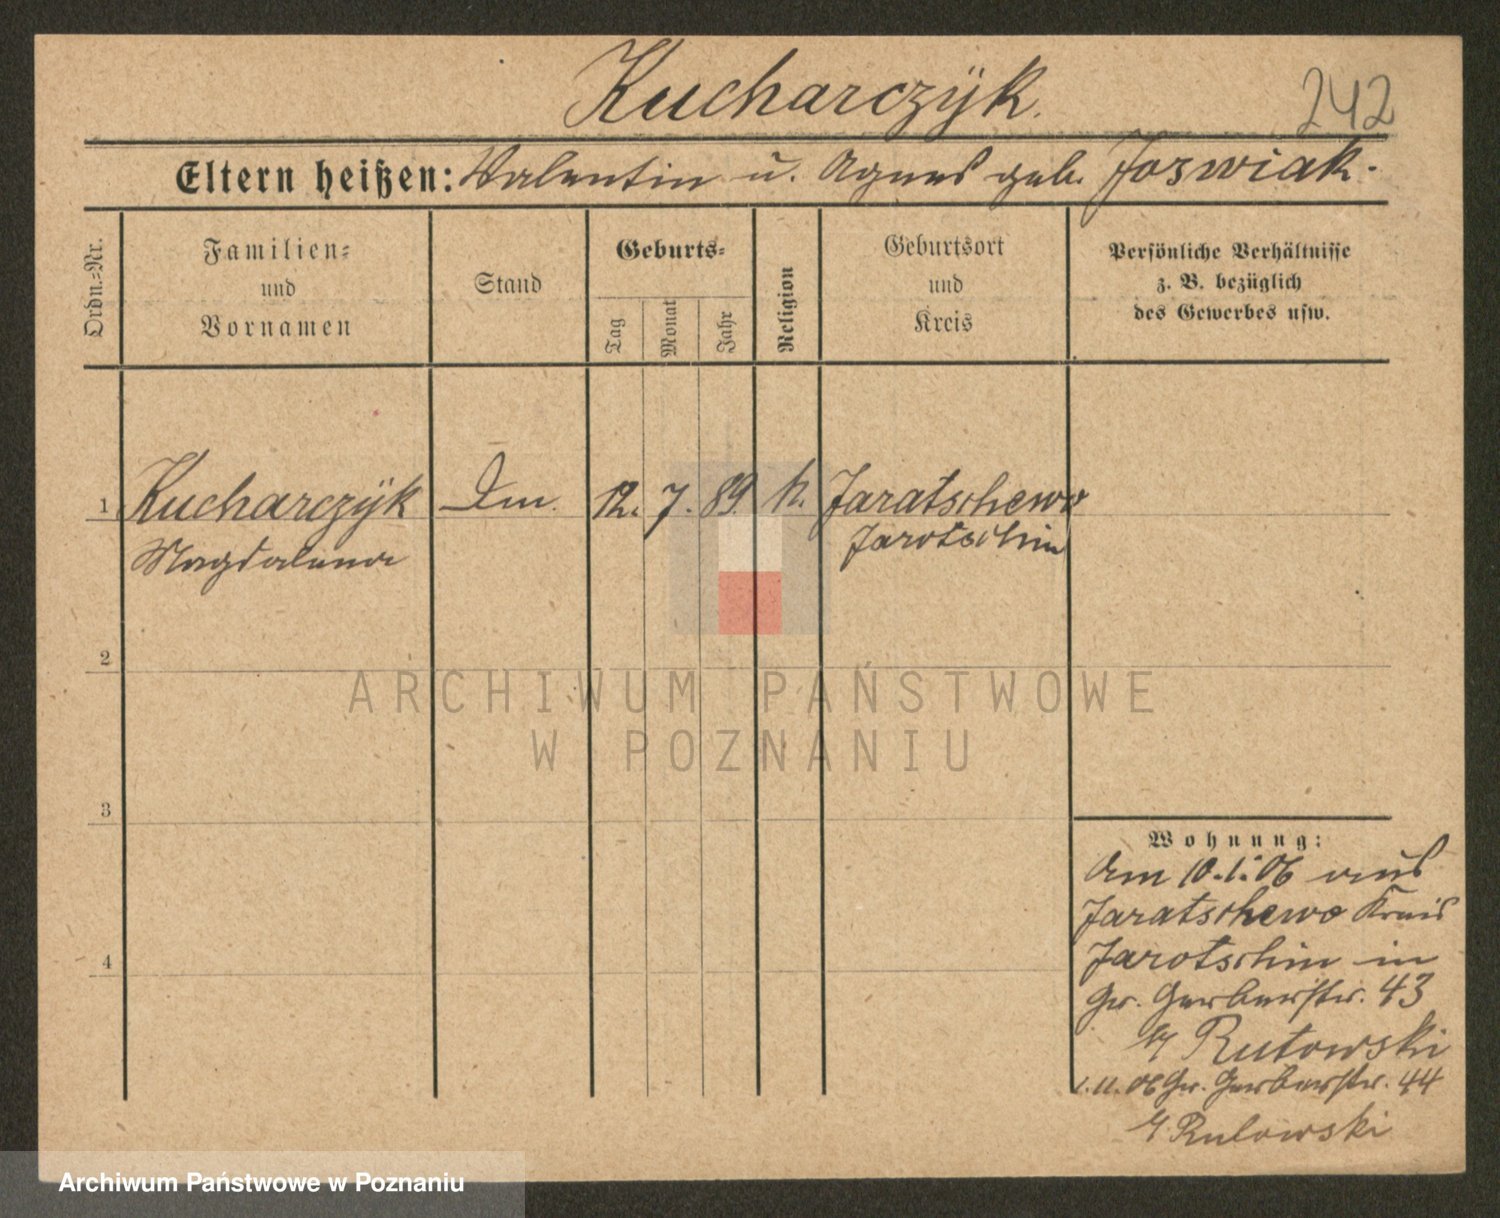 Kucharczÿk.
242
Eltern heißen: Valentin u. Agnes geb. Jozwiak.
Ordn.=Nr.
Familien=
und
Vornamen
Stand
Geburts=
Tag
Monat
Jahr
Religion
Geburtsort
und
Kreis
Persönliche Verhältnisse
z. B. bezüglich
des Gewerbes usw.
1 Kucharczÿk 12. 7. 89 k. Jaratschewo
Magdalena Jarotschin
2
ARCHIWUM PAŃSTWOWE
W POZNANIU
3
Wohnung:
Am 10.1.06 aus
Jaratschewo Kreis
4
Jarotschin in
Gr. Gerberstr. 43
b/ Rutowski
1.11.06 Gr. Gerberstr. 44
b/ Rutowski
Archiwum Państwowe w Poznaniu